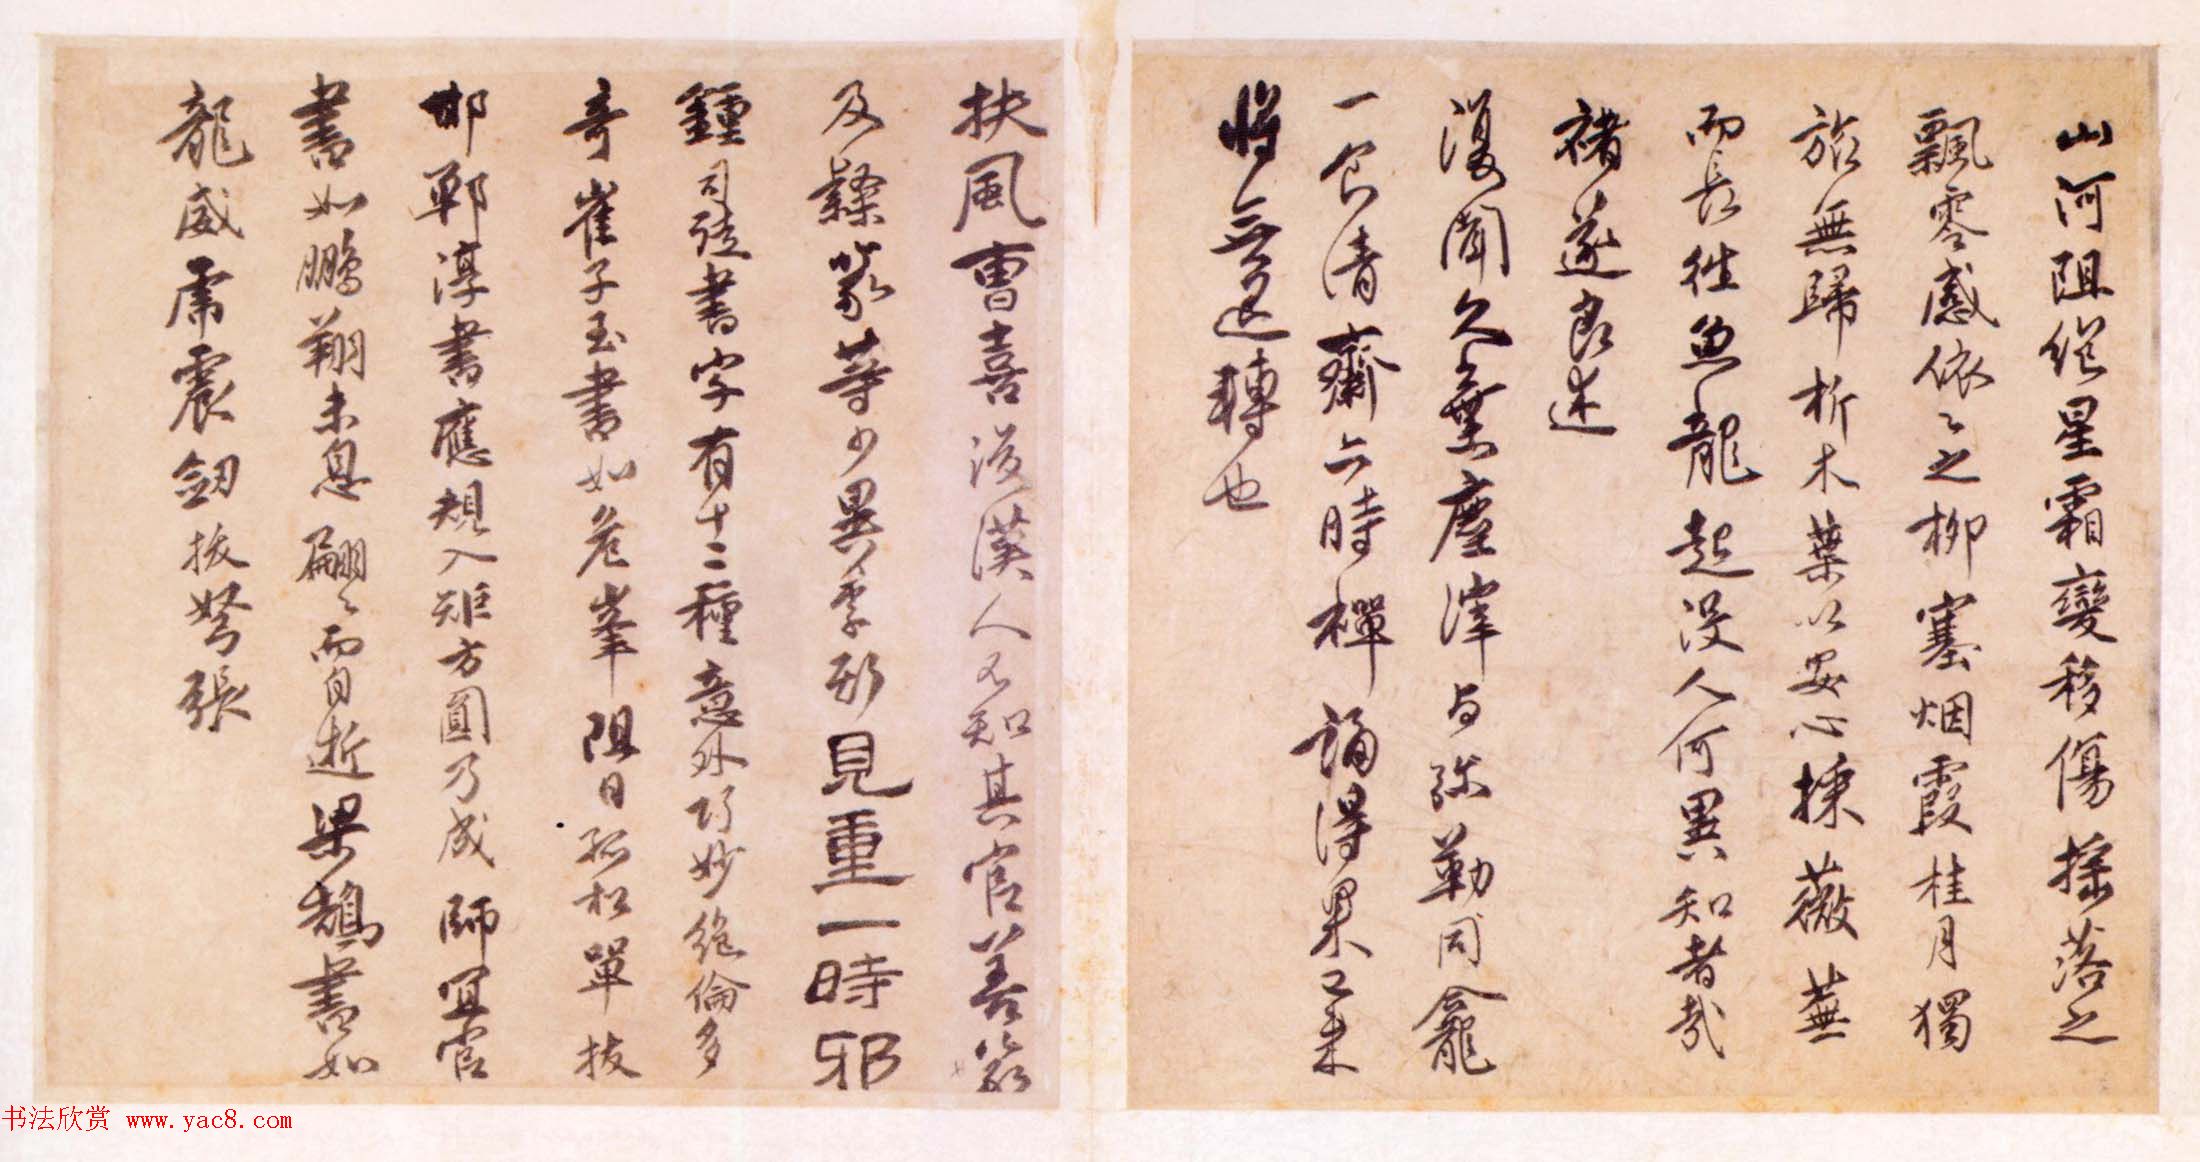 山河阻绝星霜變移傷摇落之
飄零感依〻之柳塞烟霞桂月獨
旅無歸折木葉以安心採薇蕪
而長往魚龍起没人何異知者哉
褚遂良述
復聞久棄塵滓与弥勒同龕
一食清齋六時禪誦得果已来
将無退轉也
扶風曹喜後漢人不知其官善篆
及隸篆等少異李斯見重一時邪
鍾司徒書字有十二種意外巧妙絶倫多
奇崔子玉書如危峯阻日孤松單枝
邯鄲淳書應規入矩方圓乃成師宜官
書如鵬翔未息翩〻而自逝梁鵠書如
龍威虎震劒拔弩張
书法欣赏 www.yac8.com